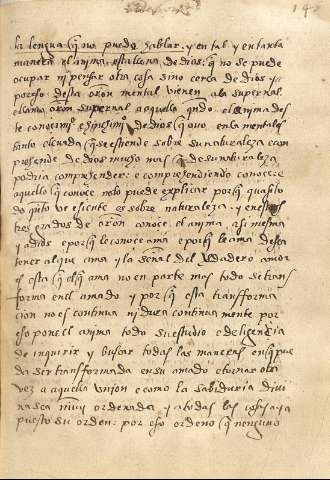 la lengua q̃ no puede hablar. y en tal y en tanta
manera el anima esta llena de dios: q̃ no se puede
ocupar ni pensar otra cosa sino cerca de dios y
por eso desta oron mental vienen a la supernal
llamo oron supernal a aquello qndo el anima des
te conocimi͂o e sentimi͂o de dios q̃ ovo en la mental es
tanto elevada q̃ se estiende sobre su naturaleza e con
prehende de dios mucho mas q̃ de su naturaleza
podria comprender: e comprehendiendo conoce: e
aquello q̃ conoce no lo puede explicar porq̃ quanto
ve e siente es sobre naturaleza. y en estos
tres grados de oron conoce el anima a si mesma
y a dios e porq̃ le conoce ama e porq̃ le ama desea
tener al que ama y la señal del verdadero amor
es esta q̃ el q̃ ama no en parte mas todo se trans
forma en el amado y porq̃ esta transforma
cion no es continua ni dura continuamente por
eso pone el anima todo su estudio e deligencia
de inquirir y buscar todas las maneras en que pue
da ser transformada en su amado e tornar otra
vez a aquella union e como la sabiduria divi
na sea muy ordenada y a todas las cosas aya
puesto su orden: por eso ordeno q̃ ninguno